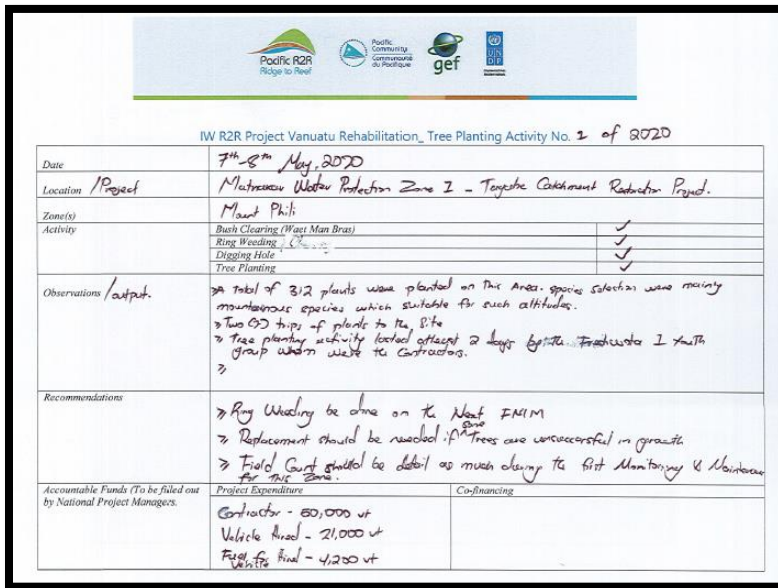 Pacific R2R
Ridge to Reef
Pacific
Community
Communauté
du Pacifique
gef
U N
D P
IW R2R Project Vanuatu Rehabilitation_ Tree Planting Activity No. 1 of 2020
Date 7th-8th May, 2020
Location /Project Matnakaw Water Protection Zone I - Tagabe Catchment Restoration Project.
Zone(s) Mount Phili
Activity Bush Clearing (Waet Man Bras) ✓
Ring Weeding / ✓
Digging Hole ✓
Tree Planting ✓
Observations /output. A total of 312 plants were planted on this Area. species selection were mainly
mountainous species which suitable for such altitudes.
» Two trips of plants to the site
» Tree planting activity lasted atleast 2 days by the Freshwota I youth
group whom were the Contractors.
»
Recommendations
» Ring Weeding be done on the Next
» Replacement should be needed if some Trees are unsuccessful in growth
» Field Count should be detail as much during the first Monitoring & Maintenance
for this Zone.
Accountable Funds (To be filled out
by National Project Managers.
Project Expenditure Co-financing
Contractor - 50,000 vt
Vehicle Hired - 21,000 vt
Fuel for Hired - 4,200 vt
Vehicle